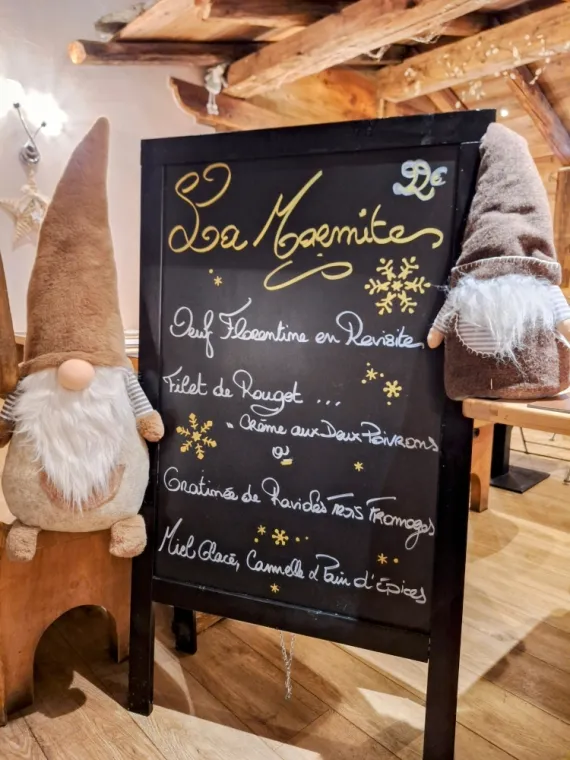 La Marmite
Oeuf Florentine en Revisite
Filet de Rouget ...
" Crème aux Deux Poivrons
ou
Gratinée de Ravioles Trois Fromages
Miel Glacé, Cannelle & Pain d'Épices